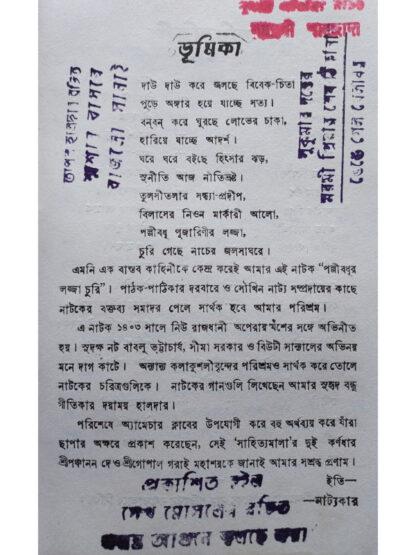 ভূমিকা
দাউ দাউ করে জলছে বিবেক-চিতা
পুড়ে অঙ্গার হয়ে যাচ্ছে সত্য।
বন্‌বন্‌ করে ঘুরছে লোভের চাকা,
হারিয়ে যাচ্ছে আদর্শ।
ঘরে ঘরে বইছে হিংসার ঝড়,
সুনীতি আজ নীতিভ্রষ্ট।
তুলসীতলার সন্ধ্যা-প্রদীপ,
বিলাসের নিওন মার্কারী আলো,
পল্লীবধূ পূজারিণীর লজ্জা,
চুরি গেছে নাচের জলসাঘরে।
এমনি এক বাস্তব কাহিনীকে কেন্দ্র করেই আমার এই নাটক “পল্লীবধূর
লজ্জা চুরি”। পাঠক-পাঠিকার দরবারে ও সৌখিন নাট্য সম্প্রদায়ের কাছে
নাটকের বক্তব্য সমাদর পেলে সার্থক হবে আমার পরিশ্রম।
এ নাটক ১৪০৩ সালে নিউ রাজধানী অপেরায় যশের সঙ্গে অভিনীত
হয়। সুদক্ষ নট বাবলু ভট্টাচার্য, সীমা সরকার ও বিউটী সান্তালের অভিনয়
মনে দাগ কাটে। অন্যান্য কলাকুশলীবৃন্দের পরিশ্রমও সার্থক করে তোলে
নাটকের চরিত্রগুলিকে। নাটকের গানগুলি লিখেছেন আমার সুহৃদ বন্ধু
গীতিকার দয়াময় হালদার।
পরিশেষে অ্যামেচার ক্লাবের উপযোগী করে বহু অর্থব্যয় করে যাঁরা
ছাপার অক্ষরে প্রকাশ করেছেন, সেই ‘সাহিত্যমালা’র দুই কর্ণধার
শ্রীপঞ্চানন দে ও শ্রীগোপাল গরাই মহাশয়কে জানাই আমার সশ্রদ্ধ প্রণাম।
ইতি—
—নাট্যকার
প্রকাশিত হইল
রচিত
শ্মশানে বাসর
বাজলো সানাই
ভেঙ্গে গেল খেলাঘর